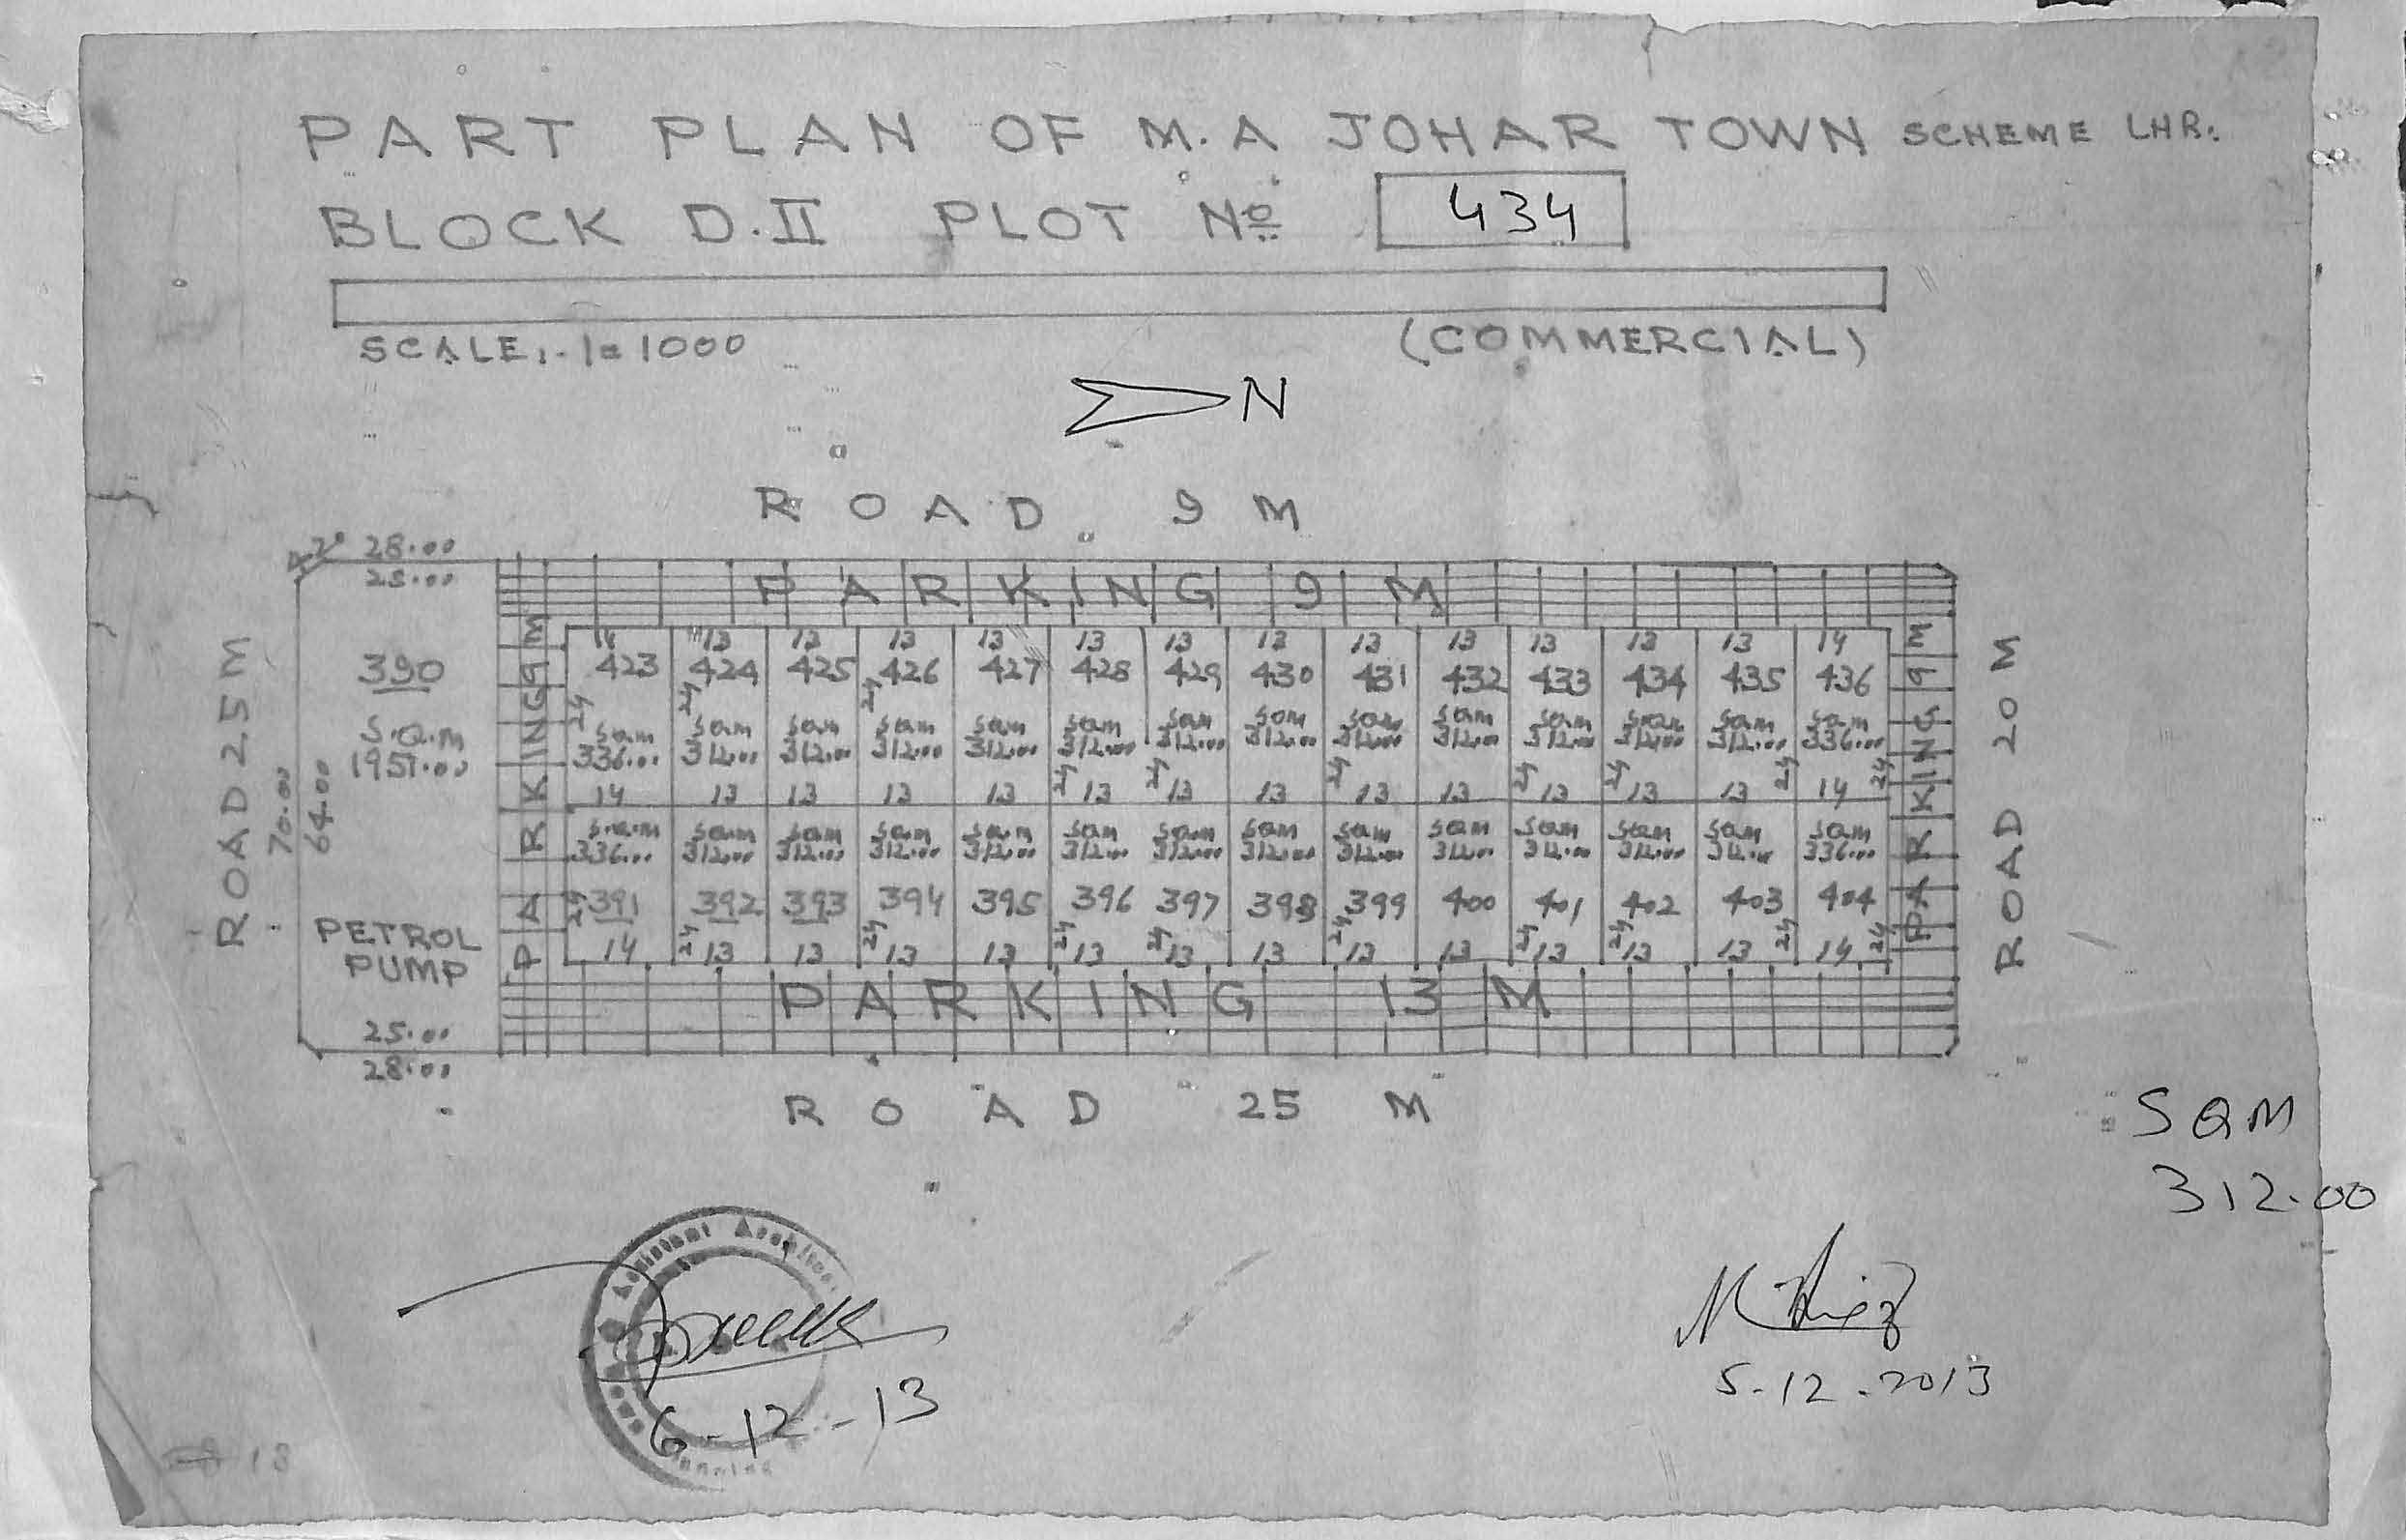 PART PLAN OF M.A JOHAR TOWN SCHEME LHR.
BLOCK D.II PLOT Nº 434
SCALE:-1=1000
(COMMERCIAL)
N
ROAD 9 M
28.00
25.00
PARKING 9 M
ROAD 25 M
70.00
64.00
390
S.Q.M
1951.00
PETROL
PUMP
25.00
28.00
PARKING 9 M
14 13 13 13 13 13 13 13 13 13 13 13 13 14
423 424 425 426 427 428 429 430 431 432 433 434 435 436
24 24 24
SQM SQM SQM SQM SQM SQM SQM SQM SQM SQM SQM SQM SQM SQM
336.00 312.00 312.00 312.00 312.00 312.00 312.00 312.00 312.00 312.00 312.00 312.00 312.00 336.00
24 24 24 24 24 24 24
14 13 13 13 13 13 13 13 13 13 13 13 13 14
S.Q.M SQM SQM SQM SQM SQM SQM SQM SQM SQM SQM SQM SQM SQM
336.00 312.00 312.00 312.00 312.00 312.00 312.00 312.00 312.00 312.00 312.00 312.00 312.00 336.00
391 392 393 394 395 396 397 398 399 400 401 402 403 404
24 24 24 24 24 24 24 24 24 24
14 13 13 13 13 13 13 13 13 13 13 13 13 14
PARKING 9 M
ROAD 20 M
PARKING 13 M
ROAD 25 M
SQM
312.00
Assistant
6-12-13
5-12-2013